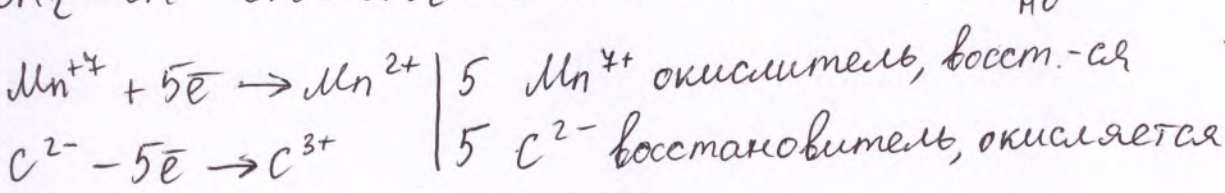 Mn⁺⁷ + 5ē → Mn²⁺ | 5 Mn⁷⁺ окислитель, восст.-ся
C²⁻ - 5ē → C³⁺ | 5 C²⁻ восстановитель, окисляется